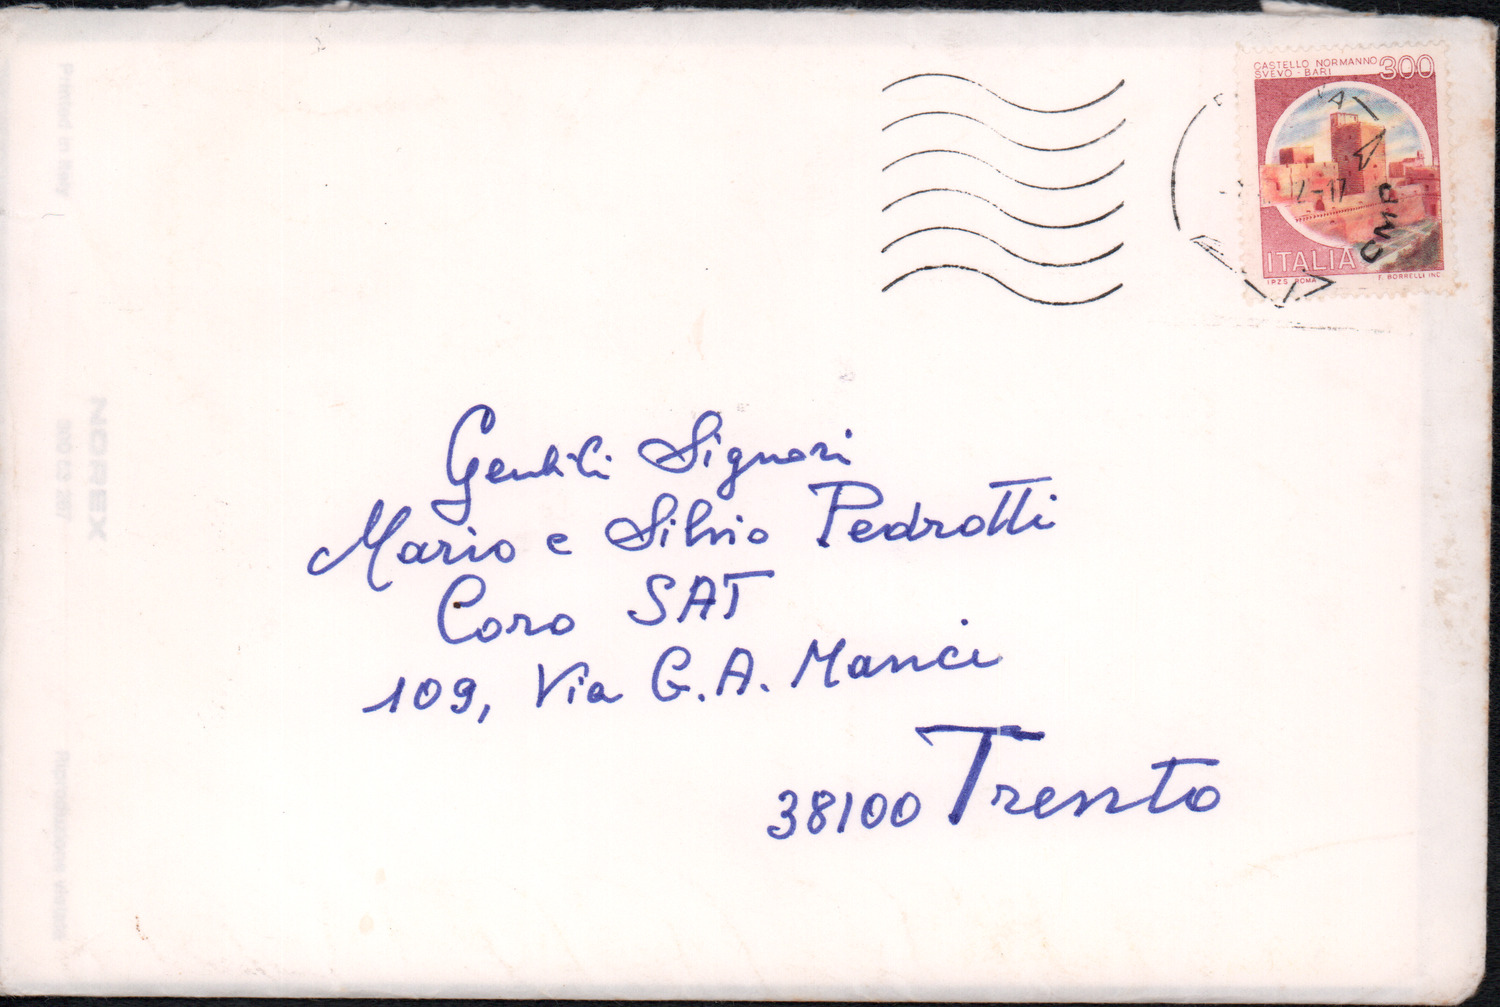 CASTELLO NORMANNO
SVEVO - BARI
300
ITALIA
I.P.Z.S. ROMA
F. BORRELLI INC.
CMP
Gentili Signori
Mario e Silvio Pedrotti
Coro SAT
109, Via G. A. Manci
38100 Trento
Printed in Italy
NOREX
Riproduzione vietata